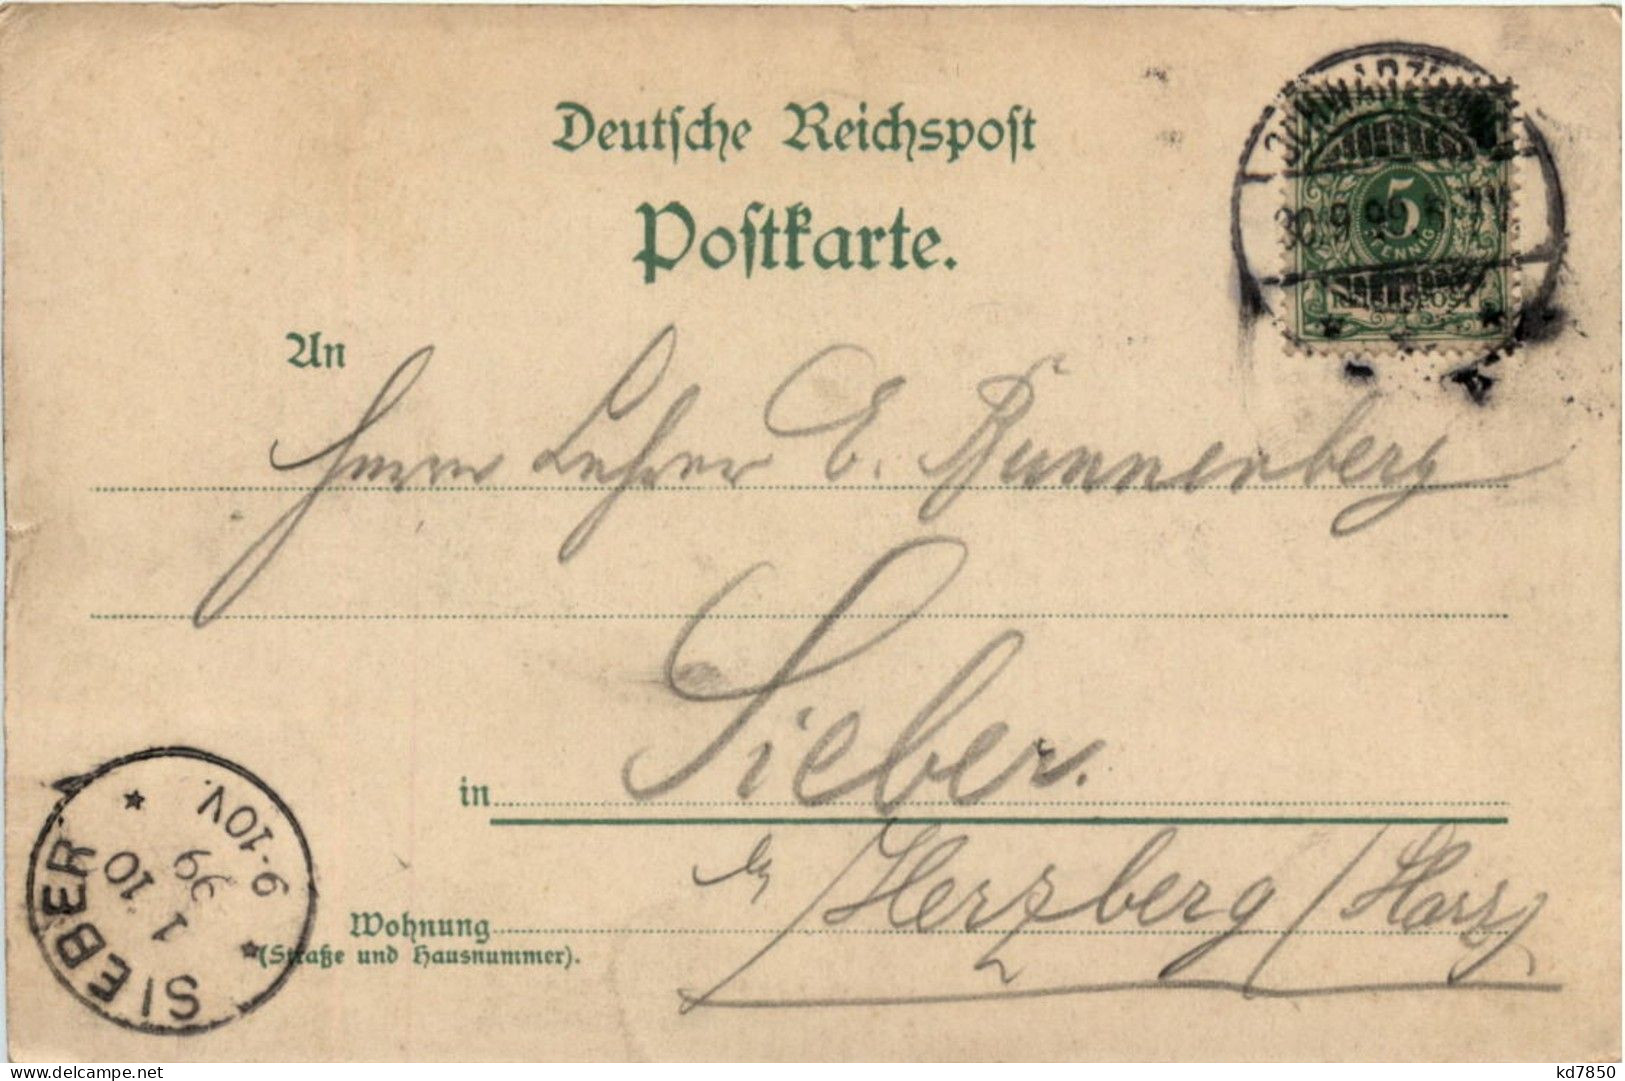 Deutsche Reichspost
Postkarte.
30/9.99. 5-7V
5
PFENNIG
REICHSPOST
An
Herrn Lehrer E. Bunnenberg
in Sieber.
b/Herzberg/Harz
Wohnung
(Straße und Hausnummer).
SIEBER
1 10
99
9-10V.
delcampe.net
kd7850